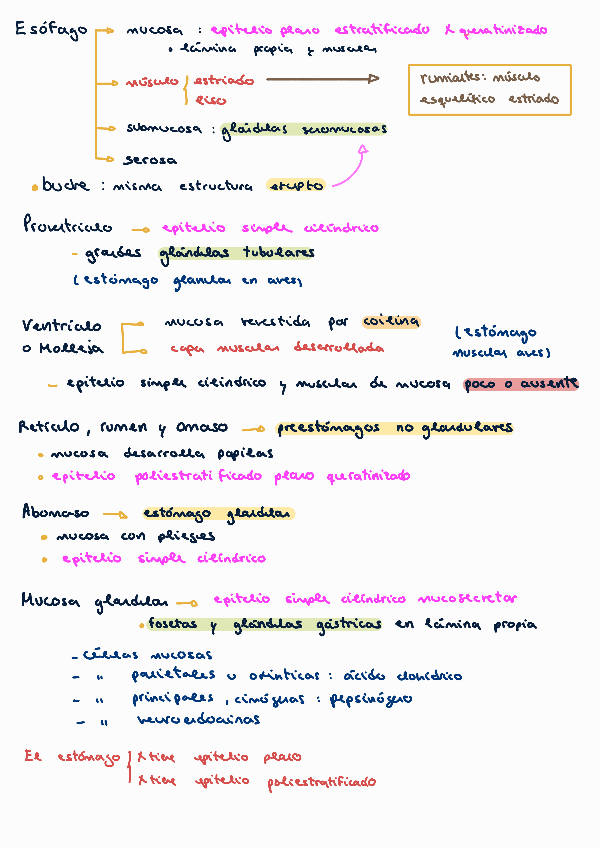 Esófago → mucosa : epitelio plano estratificado x queratinizado
• lámina propia y muscular
→ músculo { estriado →
liso
rumiantes: músculo
esquelético estriado
→ submucosa : glándulas seromucosas
→ serosa
• buche : misma estructura
Proventrículo → epitelio simple cilíndrico
- grandes glándulas tubulares
(estómago glandular en aves)
Ventrículo → mucosa revestida por coilina
o Molleja → capa muscular desarrollada
(estómago
muscular aves)
- epitelio simple cilíndrico y muscular de mucosa poco o ausente
Retículo, rumen y omaso → preestómagos no glandulares
• mucosa desarrolla papilas
• epitelio poliestratificado plano queratinizado
Abomaso → estómago glandular
• mucosa con pliegues
• epitelio simple cilíndrico
Mucosa glandular → epitelio simple cilíndrico mucosecretor
• fosetas y glándulas gástricas en lámina propia
- células mucosas
- " parietales u oxínticas : ácido clorhídrico
- " principales, cimógenas : pepsinógeno
- " neuroendocrinas
El estómago { x tiene epitelio plano
x tiene epitelio poliestratificado